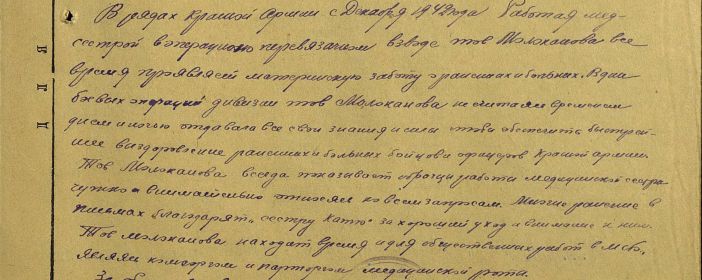 В рядах Красной Армии с Декабря 1942 года Работая мед-
сестрой в операционо перевязачном взводе тов Молоканова все
время проявляет материнскую заботу о раненых и больных. В дни
боевых операций дивизии тов Молоканова не считаясь временем
днем и ночью отдавала все свои знания и силы чтобы обеспечить быстрей-
шее выздоровление раненых и больных бойцов и офицеров Красной армии.
Тов Молоканова всегда показывает образцы работы медицинской сестры
чутко и внимательно относясь ко всем запросам. Многие раненые в
письмах благодарят "сестру Катю" за хороший уход и внимание к ним
Тов Молоканова находит время и для общественных работ в МСБ,
являясь комсоргом и парторгом медицинской роты.
Д Л Я